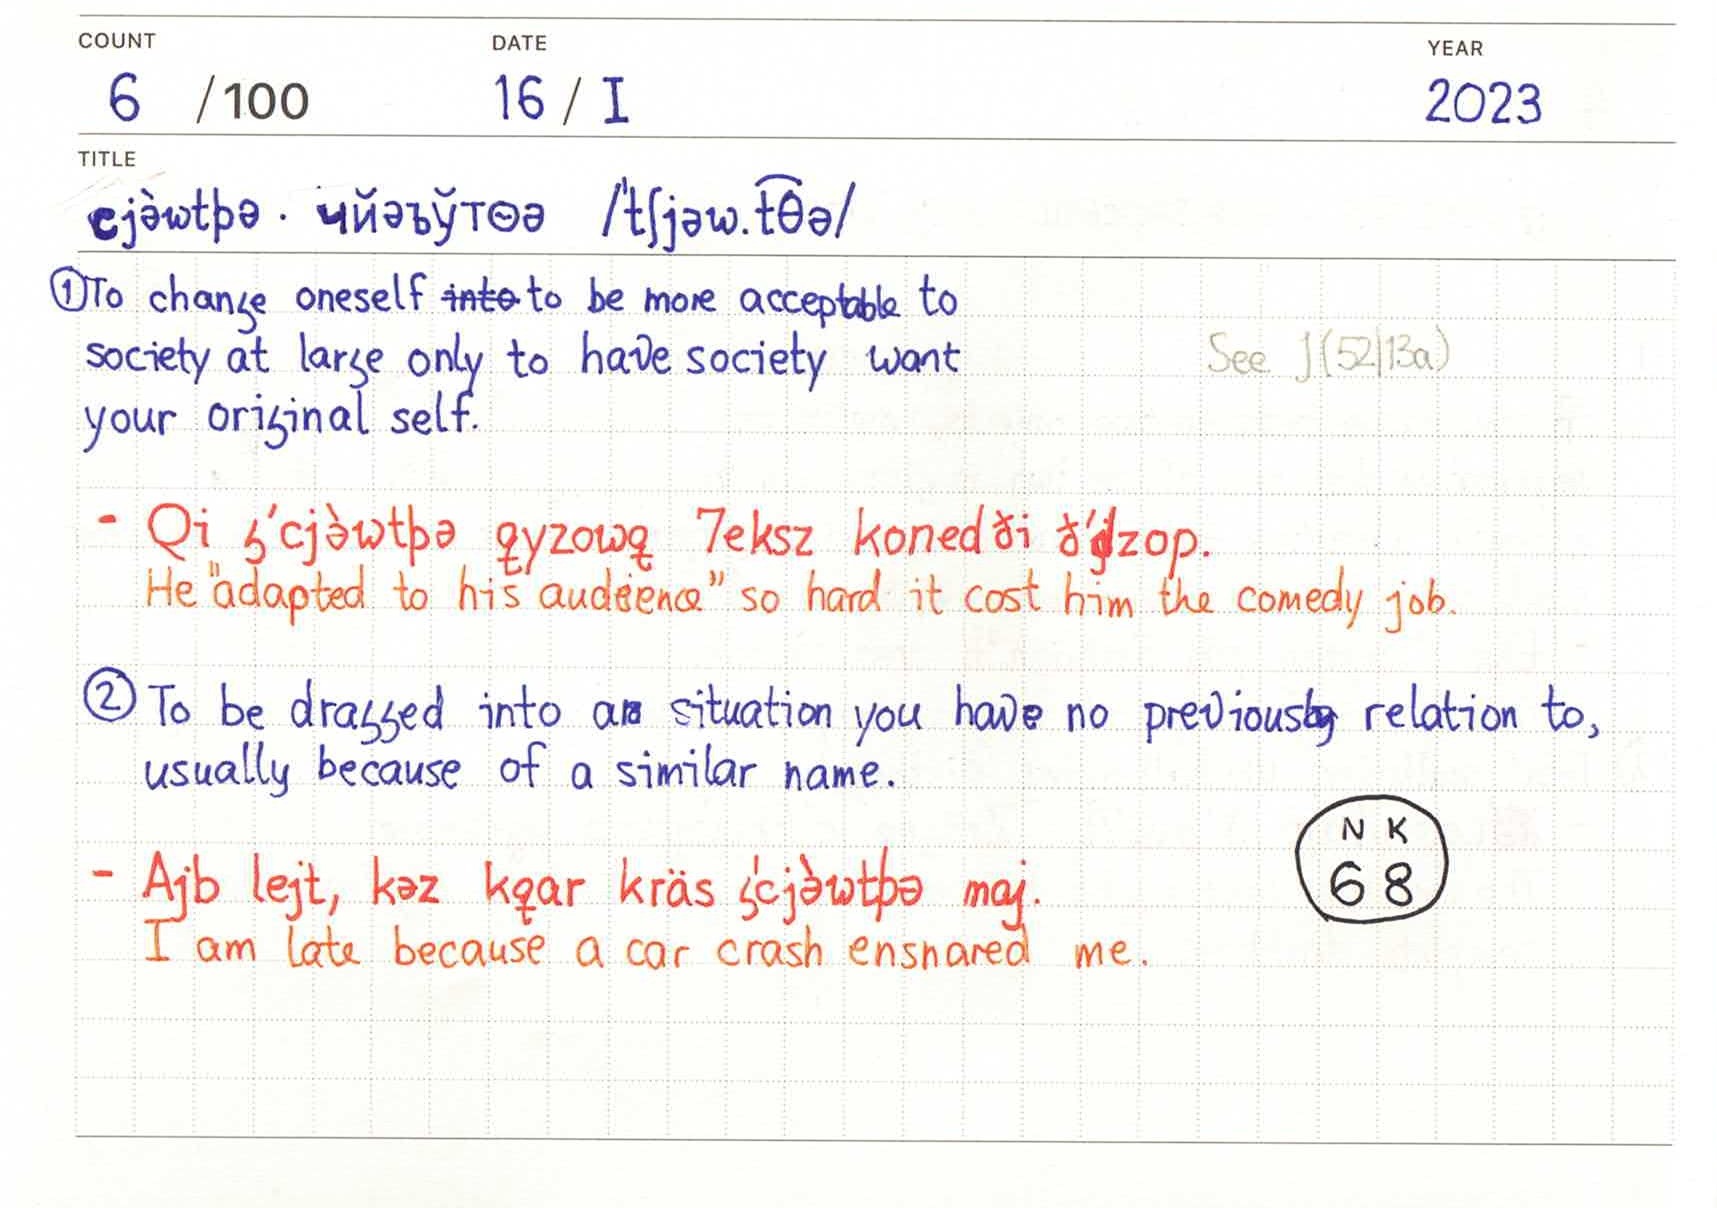 COUNT DATE YEAR
6 /100 16 / I 2023
TITLE
cjə̀ɯtþə · чйəъўтѳə /'tʃjəw.t͡θə/
① To change oneself into to be more acceptable to
society at large only to have society want
your original self.
See J(52|13a)
- Qi ɕ'cjə̀ɯtþə qyzoɯq 7eksz koned ði ð'dzop.
He "adapted to his audience" so hard it cost him the comedy job.
② To be dragged into a situation you have no previous relation to,
usually because of a similar name.
N K
68
- Ajb lejt, kəz kqar kräs ɕ'cjə̀ɯtþə maj.
I am late because a car crash ensnared me.